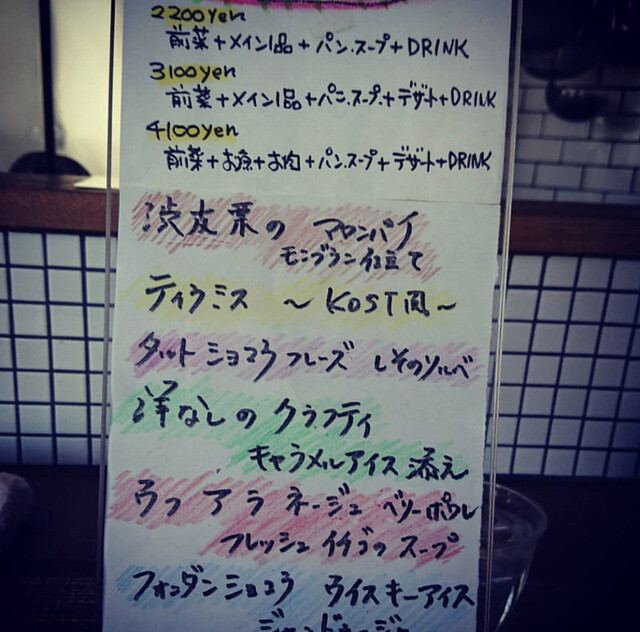 2200yen
前菜+メイン1品+パン.スープ+DRINK
3100yen
前菜+メイン1品+パン.スープ.+デザート+DRINK
4100yen
前菜+お魚+お肉+パン.スープ+デザート+DRINK
渋皮栗の マロンパイ
モンブラン仕立て
ティラミス ~KOST風~
タルト ショコラ フレーズ しそのソルベ
洋なしの クラフティ
キャラメルアイス 添え
ウフ ア ラ ネージュ ベリーポウレ
フレッシュ イチゴの スープ
フォンダンショコラ ウイスキーアイス